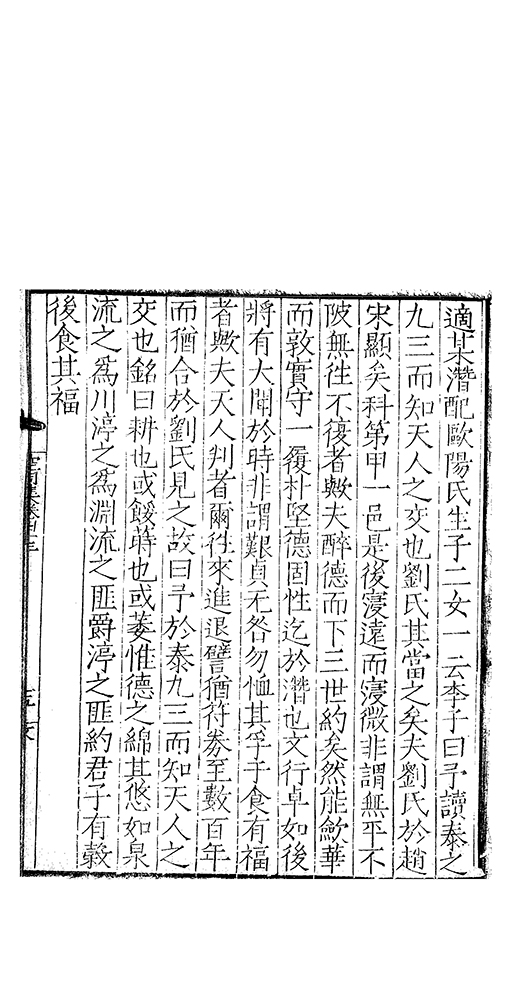 適某潛配歐陽氏生子二女一云李子曰予讀泰之
九三而知天人之交也劉氏其當之矣夫劉氏於趙
宋顯矣科第甲一邑是後寖遠而寖微非謂無平不
陂無往不復者歟夫醉德而下三世約矣然能歛華
而敦實守一履朴堅德固性迄於潛也文行卓如後
將有大聞於時非謂艱貞无咎勿恤其孚于食有福
者歟夫天人判者爾往來進退譬猶符券至數百年
而猶合於劉氏見之故曰予於泰九三而知天人之
交也銘曰耕也或餒蒔也或萎惟德之綿其悠如泉
流之為川渟之為淵流之匪爵渟之匪約君子有穀
後食其福